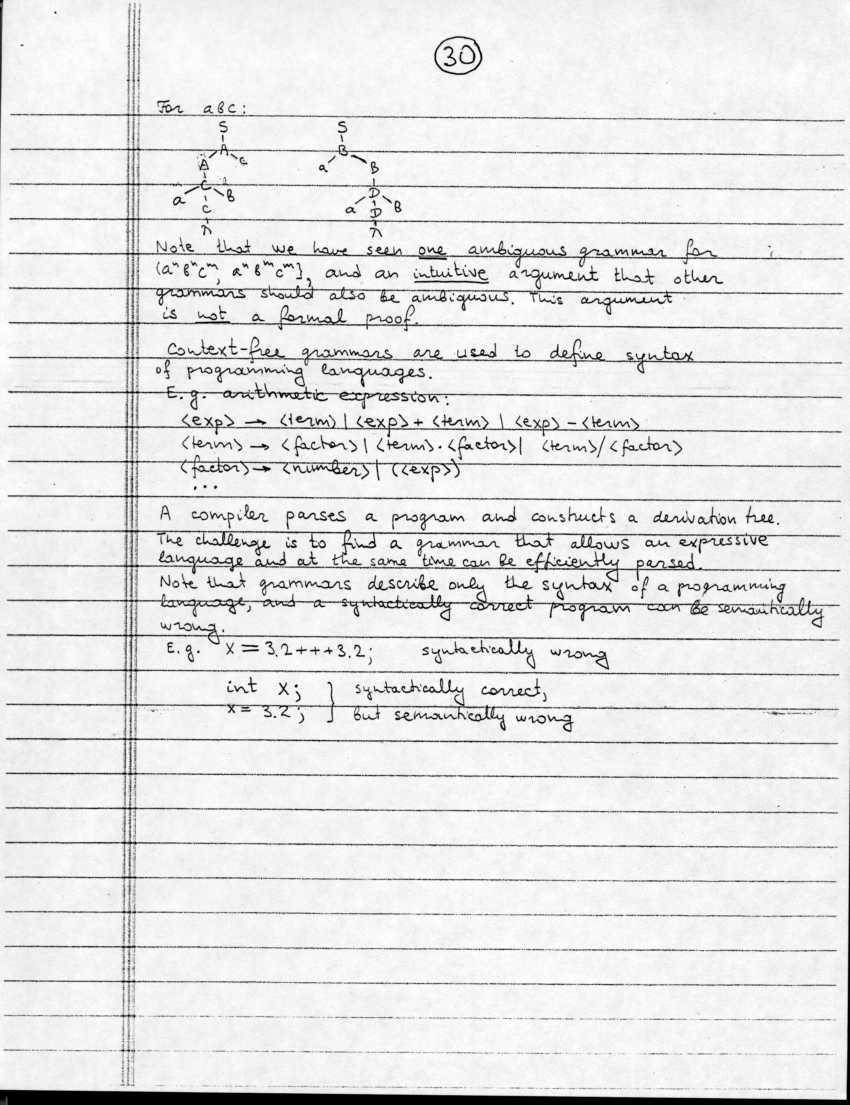 30
For abc:
S S
A B
A c a B
C D
a B a D B
C
Λ Λ
Note that we have seen one ambiguous grammar for
{aⁿbⁿcᵐ, aⁿbᵐcᵐ}, and an intuitive argument that other
grammars should also be ambiguous. This argument
is not a formal proof.
Context-free grammars are used to define syntax
of programming languages.
E.g. arithmetic expression:
<exp> → <term> | <exp> + <term> | <exp> - <term>
<term> → <factor> | <term> · <factor> | <term> / <factor>
<factor> → <number> | (<exp>)
...
A compiler parses a program and constructs a derivation tree.
The challenge is to find a grammar that allows an expressive
language and at the same time can be efficiently parsed.
Note that grammars describe only the syntax of a programming
language, and a syntactically correct program can be semantically
wrong.
E.g. x = 3.2+++3.2; syntactically wrong
int x; } syntactically correct,
x = 3.2; but semantically wrong